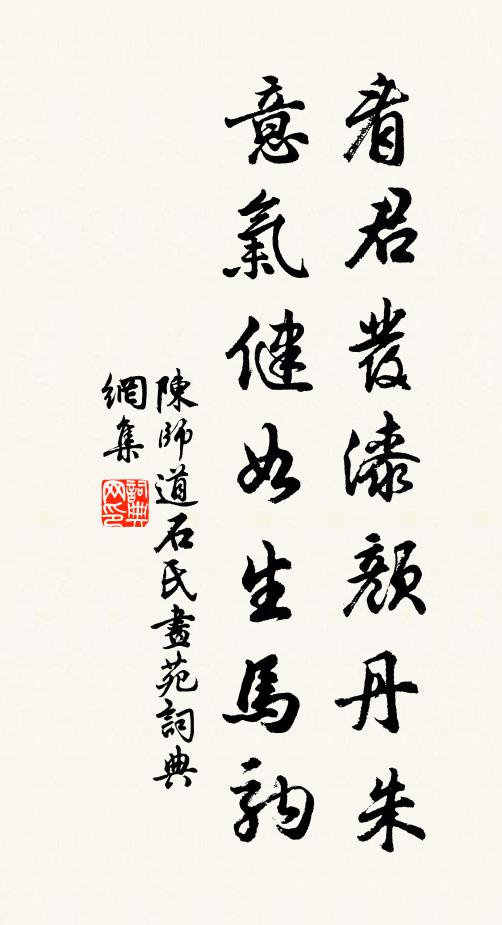 看君發漆顏丹朱
意氣健如生馬駒
陳師道石氏畫苑詞典
網集
詞典網印